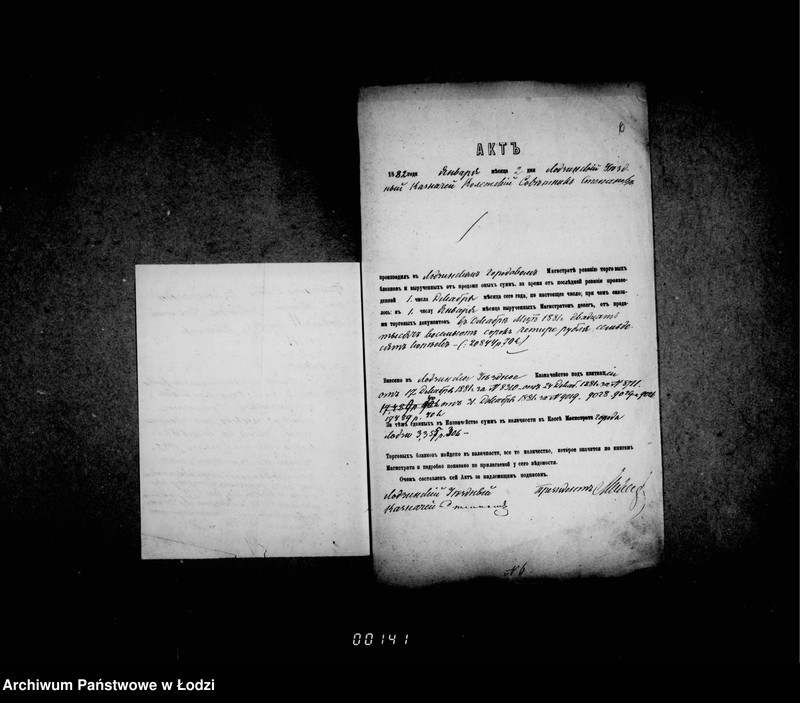 АКТЪ
1882 года Января мѣсяца 2 дня Лодзинскій Уѣзд
ный Казначей Коллежскій Совѣтникъ
произвелъ въ Лодзинскомъ Городовомъ Магистратѣ ревизію торговыхъ
бланковъ и вырученныхъ отъ продажи оныхъ суммъ, за время отъ послѣдней ревизіи произве-
денной 1 числа Декабря мѣсяца сего года, по настоящее число; при чемъ оказа-
лось: къ 1 числу Января мѣсяца вырученныхъ Магистратомъ денегъ, отъ прода-
жи торговыхъ документовъ въ Декабрѣ 1881 двадцать
тысячъ восемьсотъ сорокъ четыре рубля семьде-
сятъ копѣекъ (20844 р. 70 к.)
Внесено въ Лодзинское Уѣздное Казначейство подъ квитанціи
отъ 17 Декабря 1881 за № 8310 отъ 24 Декаб. 1881 за № 8711
отъ 31 Декабря 1881 за № 9019. 9028
17489 р. 40 к.
За тѣмъ сданныхъ въ Казначейство суммъ въ наличности въ Кассѣ Магистрата города
Лодзи 3355 р. 30 к.
Торговыхъ бланковъ найдено въ наличности, все то количество, которое значится по книгамъ
Магистрата и подробно показано въ прилагаемой у сего вѣдомости.
О чемъ составленъ сей Актъ за надлежащимъ подписомъ.
Лодзинскій Уѣздный Президентъ
Казначей
№ 6
00141
Archiwum Państwowe w Łodzi